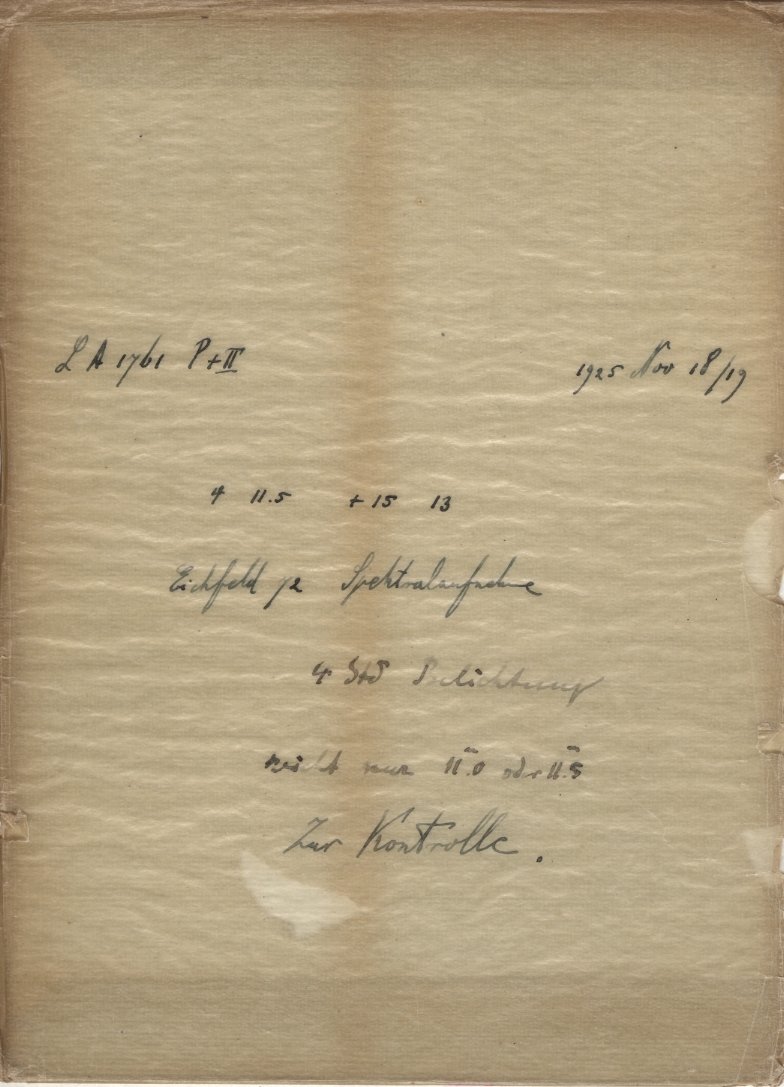 L A 1761 P+II 1925 Nov 18/19
4 11.5 +15 13
Eichfeld 72 Spektralaufnahme
4 Std Belichtung
reicht nur 11.0 oder 11.5
Zur Kontrolle.